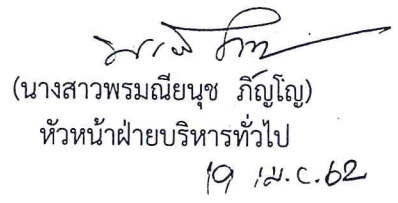 (นางสาวพรมณียนุช ภิญโญ)
หัวหน้าฝ่ายบริหารทั่วไป
19 เม.ย.62